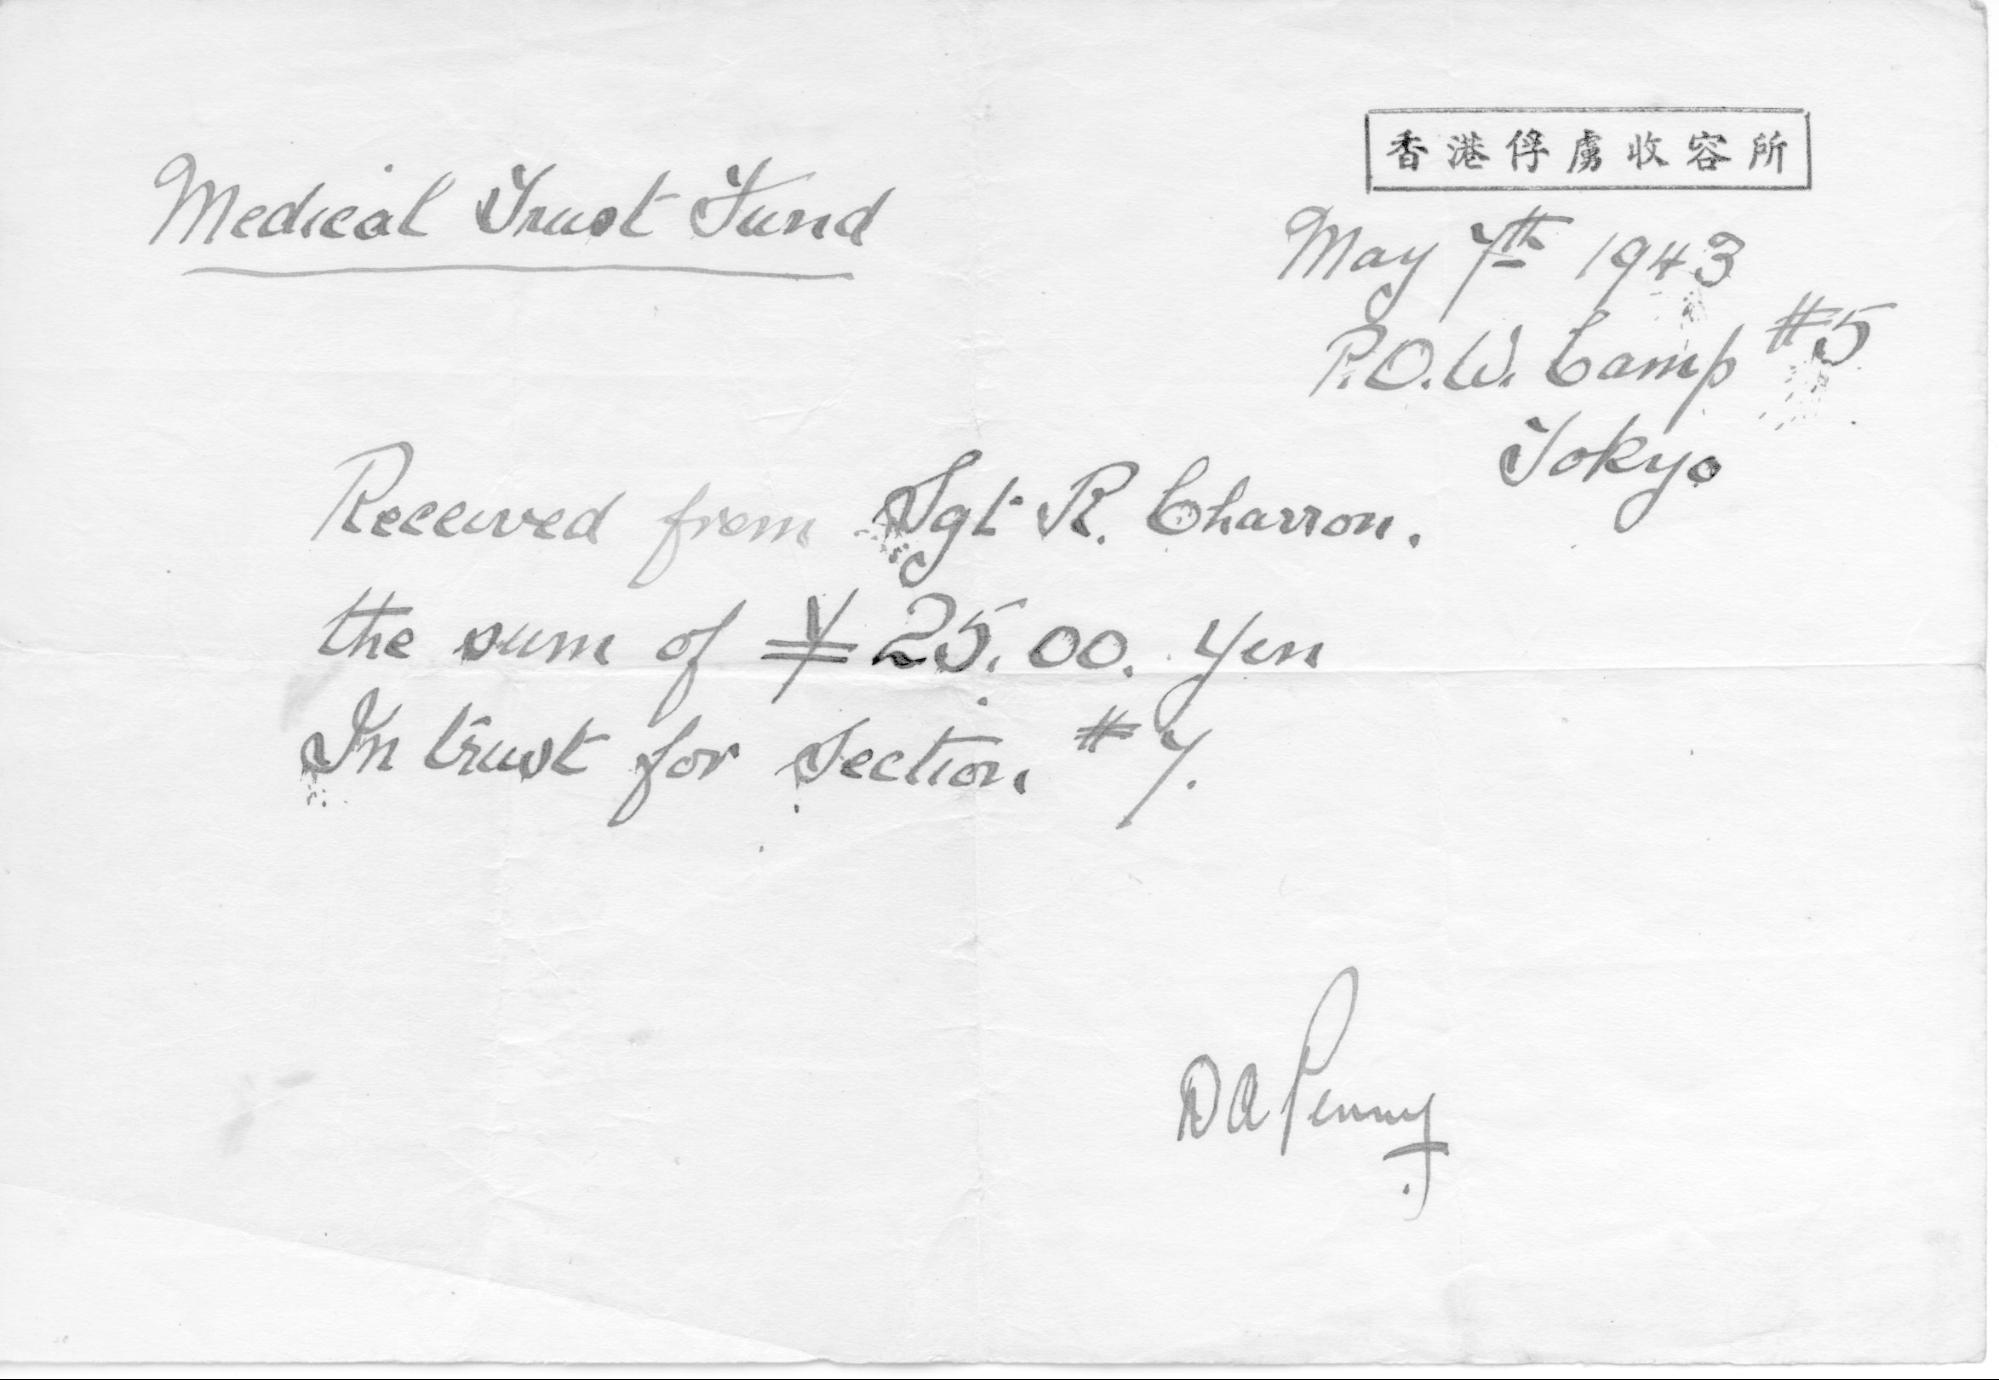 香港俘虜收容所
Medical Trust Fund
May 7th 1943
P.O.W. Camp #5
Tokyo
Received from Sgt R. Charron.
the sum of ¥ 25.00. Yen
In trust for section #7.
D A Penny